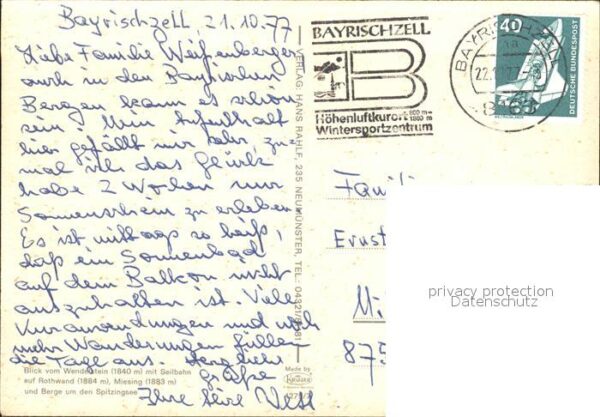 Bayrischzell, 21.10.77
Liebe Familie Weißenberger
auch in den Bayrischen
Bergen kann es schön
sein! Mein Aufenthalt
hier gefällt mir sehr, zu-
mal ich das Glück
habe 2 Wochen nur
Sonnenschein zu erleben.
Es ist mittags so heiß,
daß ein Sonnenbad
auf dem Balkon nicht
auszuhalten ist. Viele
Kuranwendungen und noch
mehr Wanderungen füllen
die Tage aus. Herzliche
Grüße
Ihre
Blick vom Wendelstein (1840 m) mit Seilbahn
auf Rothwand (1884 m), Miesing (1883 m)
und Berge um den Spitzingsee
VERLAG: HANS RAHLF, 235 NEUMÜNSTER, TEL.: 04321/
Made by
Krüger
BAYRISCHZELL
B
Höhenluftkurort 800 m-1800 m
Wintersportzentrum
BAYRISCHZELL
40
DEUTSCHE BUNDESPOST
Famili
Ernst
M
875
privacy protection
Datenschutz